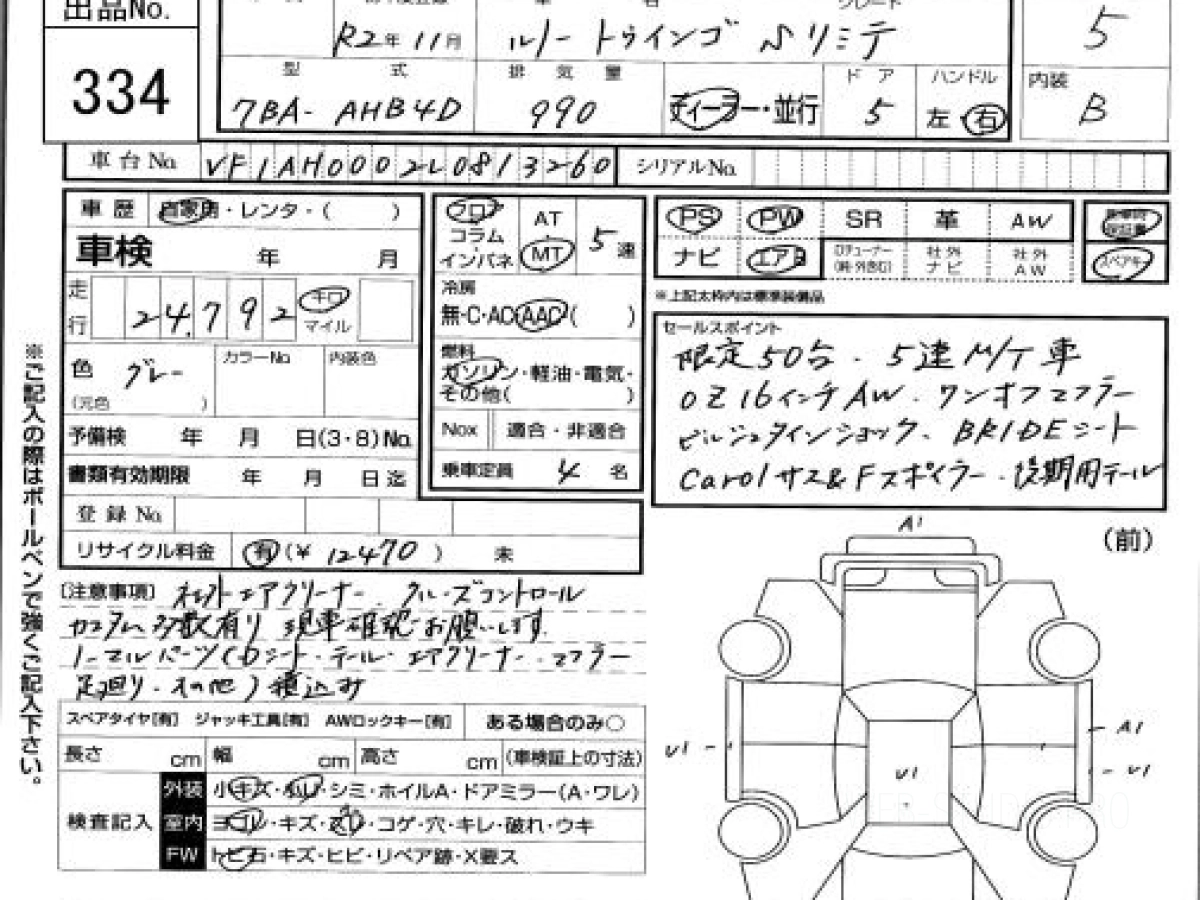 出品No.
334
R2年 11月
ルノー トゥインゴ Sリミテ
5
型 式 排 気 量 ドア ハンドル 内装
7BA- AHB4D 990 ディーラー・並行 5 左・右 B
車台No. VF1AH0002L0813260 シリアルNo.
車歴 自家用・レンタ・( )
車検 年 月
走行 24,792 キロ マイル
色 グレー カラーNo. 内装色
(元色 )
予備検 年 月 日(3・8)No.
書類有効期限 年 月 日迄
登録No.
リサイクル料金 有(¥ 12470 ) 未
フロア コラム インパネ
AT・MT 5速
冷房
無・C・AC・AAC( )
燃料
ガソリン・軽油・電気・
その他( )
Nox 適合・非適合
乗車定員 4 名
PS PW SR 革 AW
ナビ エアB 社外ナビ 社外AW
スペアキー
※上記太枠内は標準装備品
セールスポイント
限定50台. 5速M/T車
OZ16インチAW. ワンオフマフラー
ビルシュタインショック、BRIDEシート
Carolサス&Fスポイラー. 後期用テール
[注意事項] エアクリーナー. クルーズコントロール
カスタム多数有り 現車確認お願いします.
ノーマルパーツ(Dシート・テール・エアクリーナー・マフラー
足廻り・その他)積込み
スペアタイヤ[有] ジャッキ工具[有] AWロックキー[有] ある場合のみ○
長さ cm 幅 cm 高さ cm (車検証上の寸法)
検査記入
外装 小キズ・小凹・シミ・ホイルA・ドアミラー(A・ワレ)
室内 ヨゴレ・キズ・スレ・コゲ・穴・キレ・破れ・ウキ
FW トビ石・キズ・ヒビ・リペア跡・X要ス
※ご記入の際はボールペンで強くご記入下さい。
A1
(前)
U1 A1
U1 U1